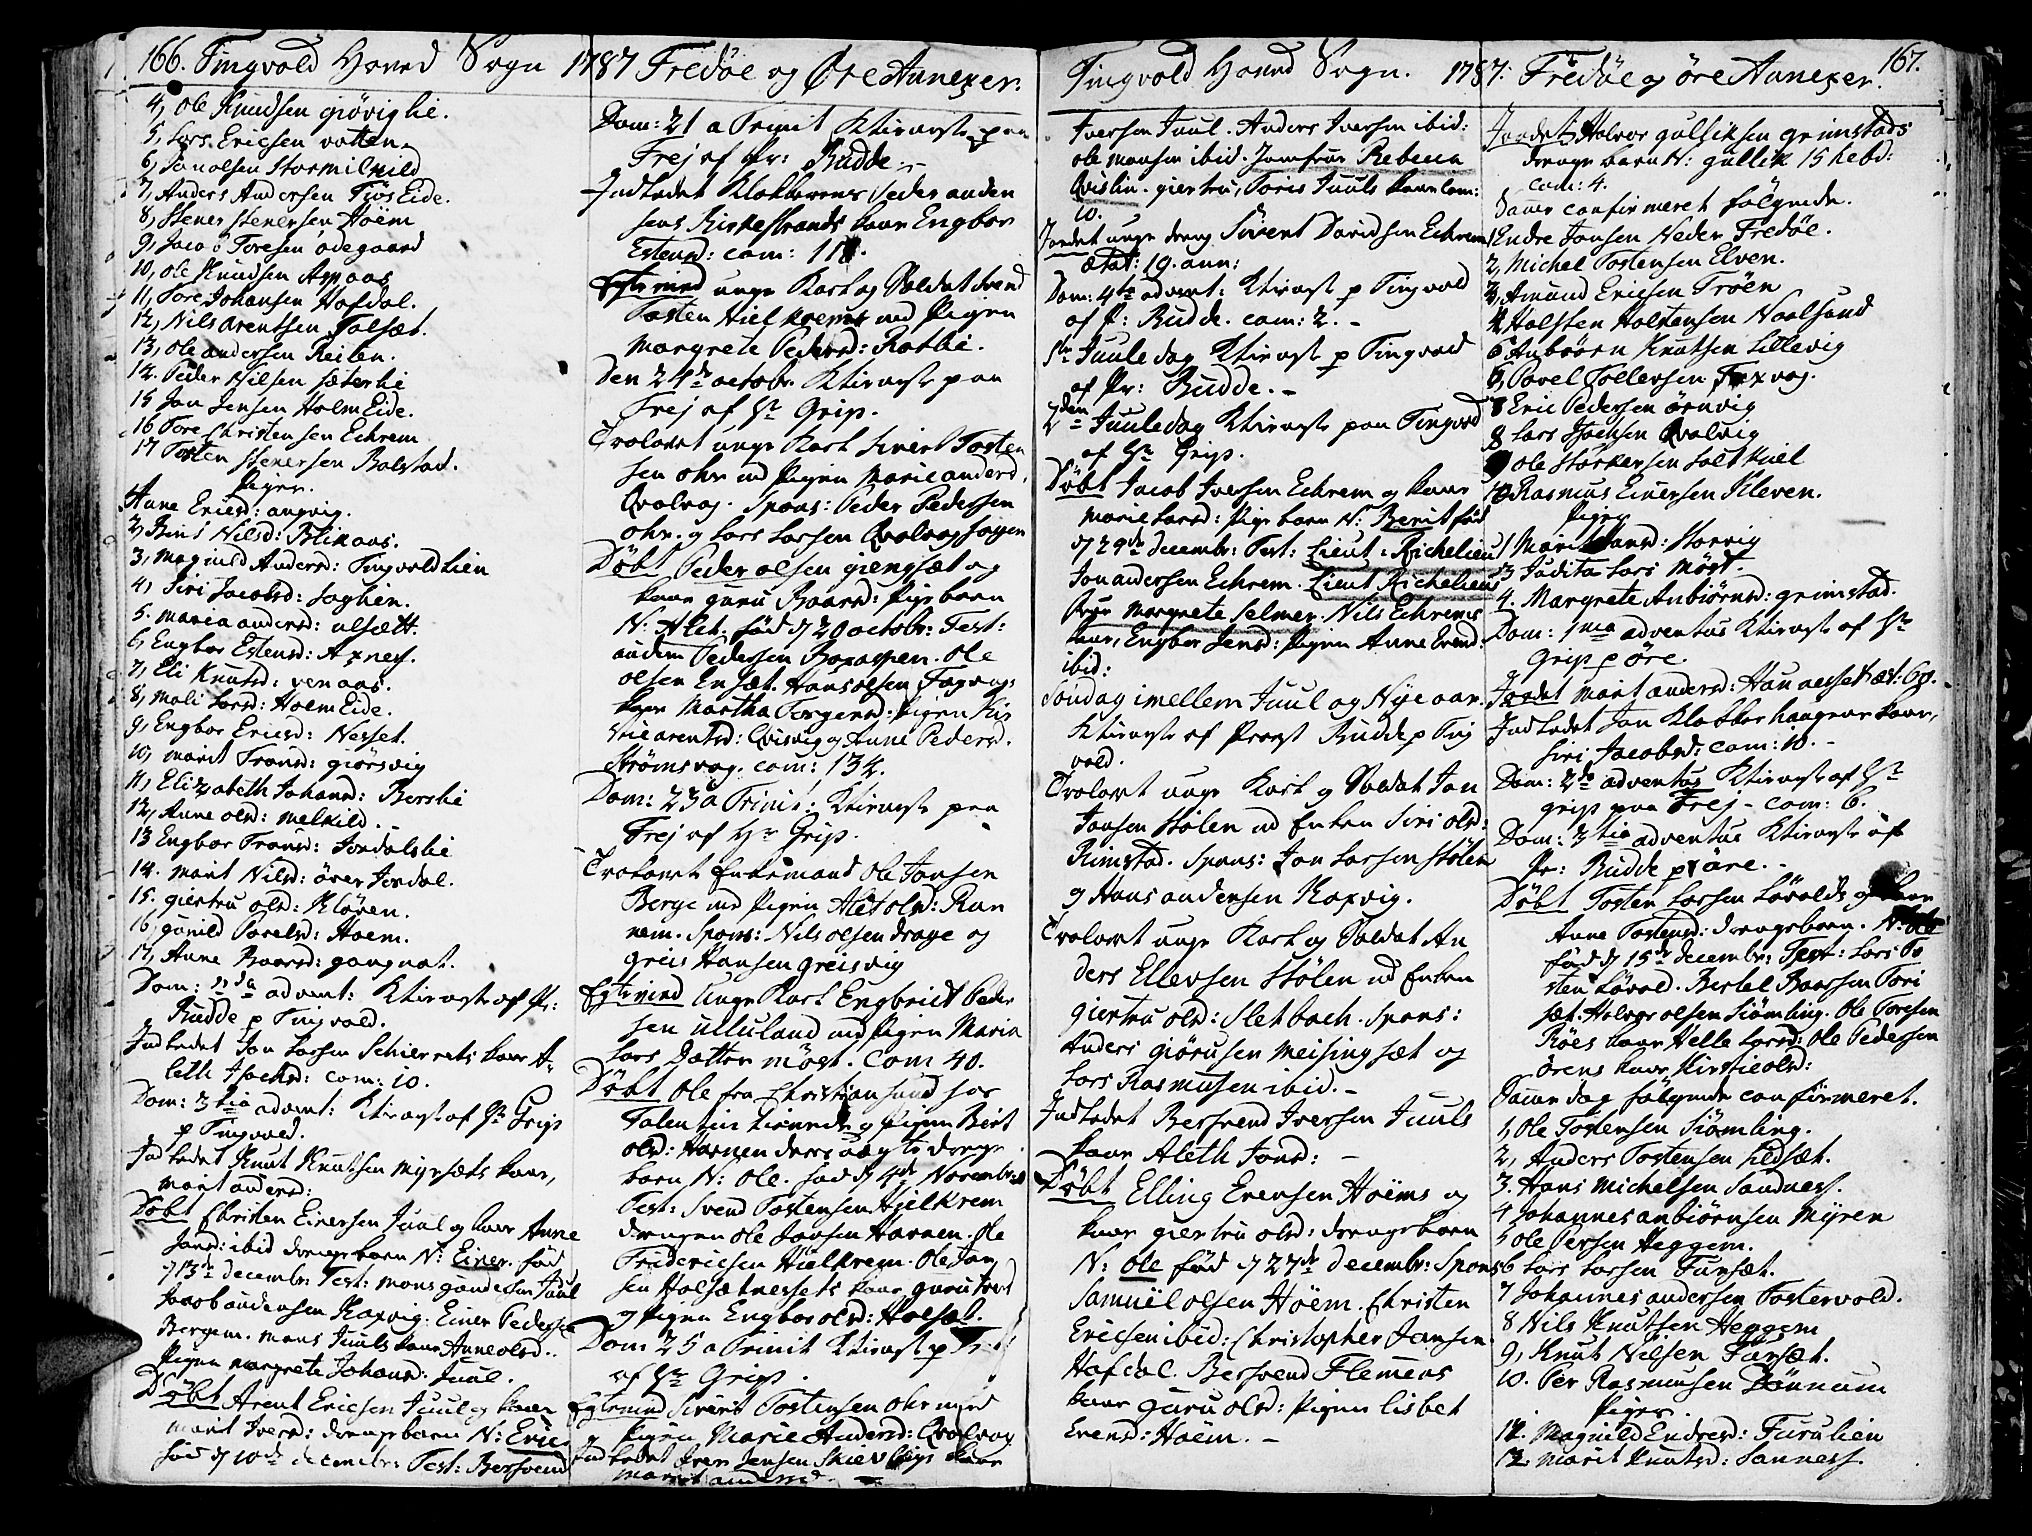 166. Tingvold Hoved Sogn 1787 Fredöe og Øre Annexer:
4, Ole Knudsen giövig lie.
5, Lars Ericsen vatten
6, Jan olsen Stormelkild
7, Anders Andersen Tiøs Eide.
8, Stener Stenersen Höem
9, Jacob Toresen ødegaard
10, Ole Knudsen Aspaas
11, Tore Johansen Hafdal.
12, Nils Arentsen Talsæt.
13, Ole andersen Reiten.
14. Peder Nilsen sæterlie
15 Jan Jensen Holm Eide.
16 Tore Christensen Echrem
17 Tosten Stenersen Bolstad.
Piger.
Anne Ericsd: angvig.
2, Brit Nilsd: Blikaas.
3, Magnild Andersd: Tingvold Lien
4, Siri Jacobsd: Saghien.
5. maria andersd: ulsætt.
6, Engbor Estensd: Axnes.
7, Eli Knutsd: venaas.
8, mali Larsd: Holm Eide.
9, Engbor Ericsd: Nesset.
10, marit Tronsd: giörsvig
11, Elizabeth Johansd: Berslie
12, Anne olsd: melkild.
13 Engbor Tronsd: Jordalslie
14. marit Nilsd: över Jordal.
15. giertru olsd: Kløven.
16, gunild Povelsd: Hoem.
17, Anne Baarsd: gangnat.
Dom: 2da advent: Ktieneste af Pr:
Budde p Tingvold.
Indledet Jan Larssen Schierrets kone A-
leth Isachsd: com: 10.
Dom: 3tia advent: Ktieneste af Hr Grip
p Tingvold.
Indledet Knut Knutsen Myrsæts kone,
marit andersd:
Döbt Christen Einersen Juul og kone Anne
Jansd: ibid drengebarn N: Einer. föd
d 13de decembr: Test: mons gundersen Juul
Jacob andersen Kaxvig. Einer Pedersen
Bergem. mons Juuls kone Anne olsd..
Pigen margrete Johansd: Juul.
Döbt Arent Ericsen Juul og kone
marit Iversd: drengebarn N: Eric.
föd d 10de decembr: Test: Bersvend
Dom: 21 a Trinit Ktieneste paa
Frej af Pr: Budde.-
Indledet Klokkerens Peder anden
sens Kirkestrands kone Engbor
Estensd: com: 111.
Egteviid unge Karl og Soldat Svend
Tosten Hielkrems med Pigen
Margrete Pedersd: Rotlie.
Den 24de octobr. Ktieneste paa
Frej af Hr Grip.
Trolovet unge Karl Sivert Tosten
sen ohr med Pigen Marie andersd,
Qvalvog. Spons: Peder Pedersen
ohr. og Lars Larsen Qvalvog
Döbt Peder olsen giengsæt og
kone guru Baarsd: Pige barn
N: Alet: föd d 20 octobr: Test:
anders Pedersen Boxaspen. Ole
olsen Ensæt. Hans olsen Fagvogs
kone Martha Torgersd: Pigen Kir
stie arentsd: Qvisvig og Anne Pedersd.
Strömsvog. com: 134.
Dom: 23 a Trinit: Ktieneste paa
Frej af Hr Grip.
Trolovet Enkemand Ole Jansen
Berge med Pigen Alet olsd: Ran
nem. Spons: Nils olsen drage og
greis Hansen greisvig
Egteviid Unge Karl Engbrict Peder
sen ulluland med Pigen Maria
Lars Datter möst. Com 40.
Döbt Ole fra Christiansund hos
Valentin og Pigen Berit
olsd: Havnen deres uægte drenge
barn N: Ole. föd d 4de Novembris
Test: Svend Tostensen Hjelkrem
drengen ole Jansen Havnen. Ole
Fridericsen Hielkrem. Ole Jan
sen Halsætnessets kone guru Iversd
og Pigen Engbor olsd: Halsæt.
Dom: 25 a Trinit Ktieneste p
af Hr Grip.
Egteviid Sivert Tostensen ohr med
Pigen Marie Andersd: Qvalvog
Indledet Iver Jensen kone
marit andersd.

Tingvold Hoved Sogn. 1787: Fredöe og öre Annexer. 167.
Iversen Juul. Anders Iversen ibid:
ole monsen ibid. Jomfrue Rebecca
Qvislin. giertru, Toris Juuls kone com:
10.
Jordet unge dreng Sivert Davidsen Echrem
ætat: 19. ann:
Dom: 4ta advent: Ktieneste p Tingvold
af Pr: Budde. com: 2. -
1ste Juule dag Ktieneste p Tingvold
af Pr: Budde. -
2den Juuledag Ktieneste paa Tingvold
af Hr Grip.
Döbt Jacob Iversen Echrem og kone
Marie Larsd: Pige barn N: Berit föd
d 29de decembr: Test: Lieut: Richelieu
Jon andersen Echrem. Lieut Richelieus
Frue Margrete Selmer. Nils Echrems
kone, Engbor Jensd: Pigen Anne Evensd:
ibid:
Söndag imellem Juul og Nye aar
Ktieneste af Provst Budde p Ting
vold.
Trolovet unge Karl og Soldat Jan
Jansen Stölen med Enken Siri olsd:
Rimstad. Spons: Jon Larsen Stölen
og Hans andersen Kaxvig.
Trolovet unge Karl og Soldat An
ders Ellevsen Stölen med Enken
giertru olsd: Sletbach. Spons:
Anders giörusen Meisingsæt og
Lars Rasmusen ibid.-
Indledet Bersvend Iversen Juuls
kone Aleth Jonsd: -
Döbt Elling Evensen Höems og
kone giertru olsd: drengebarn
N: Ole föd d 27de decembr: Spons
Samuel olsen Höem. Christen
Ericsen ibid: Christopher Jansen.
Hafdal. Bersvend Flemens
kone guru olsd: Pigen Lisbet
Evensd: Hoem. -
Jordet Halvor gulliksen grimstads
drenge barn N: gullik 15 hebd:
com: 4.
Samme confirmeret fölgende.
1 Endre Jansen Neder Fredöe.
2, Michel Tostensen Elven.
3, Amund Ericsen Tröen
4 Holsten Holstensen Noalsund
5 Anbiörn Knutsen Lillevig
6, Povel Tollevsen
7 Eric Pedersen örnvig
8 Lars Isachsen Qvalvig
9 Ole Storkersen Salthiel
10 Rasmus Einersen Eleven.
Piger
1 Marit Hansd: Storvig
3 Judita Lars Möst.
4. Margrete Anbiörnsd: grimstad.
Dom: 1ma adventus Ktieneste af Hr
Grip p öre.
Jordet marit andersd: Hannesset æt: 69.
Indledet Jon Klokkerhaugens kone,
Siri Jacobsd: com: 10.-
Dom: 2da adventus Ktieneste af Hr
grip paa Frej - com: 6.
Dom: 3tia adventus Ktieneste af
Pr: Budde p öre. -
Döbt Tosten Larsen Lövolds og kone
Anne Tostensd: drengebarn. N:
föd d 15de decembr: Test: Lars To
sten Lövold. Bertel Baarsen Tori
sæt. Halvor olsen Siömling. Ole Toresen
Röes kone Helle Larsd: Ole Pedersen
örens kone Kirstie olsd:
Samme dag fölgende confirmeret.
1, Ole Tostensen Siömling.
2, Anders Tostensen Lidsæt.
3. Hans Michelsen Sandnes.
4 Johannes anbiörnsen Myren
5 Ole Persen Heggem.
6 Lars Larsen Fursæt.
7 Johannes andersen Tostervold.
8 Nils Knutsen Heggem
9, Knut Nilsen Fursæt.
10. Per Rasmusen Dönnum
Piger.
11. Magnild Endresd: Furulien
12. Marit Knutsd: Sannes.